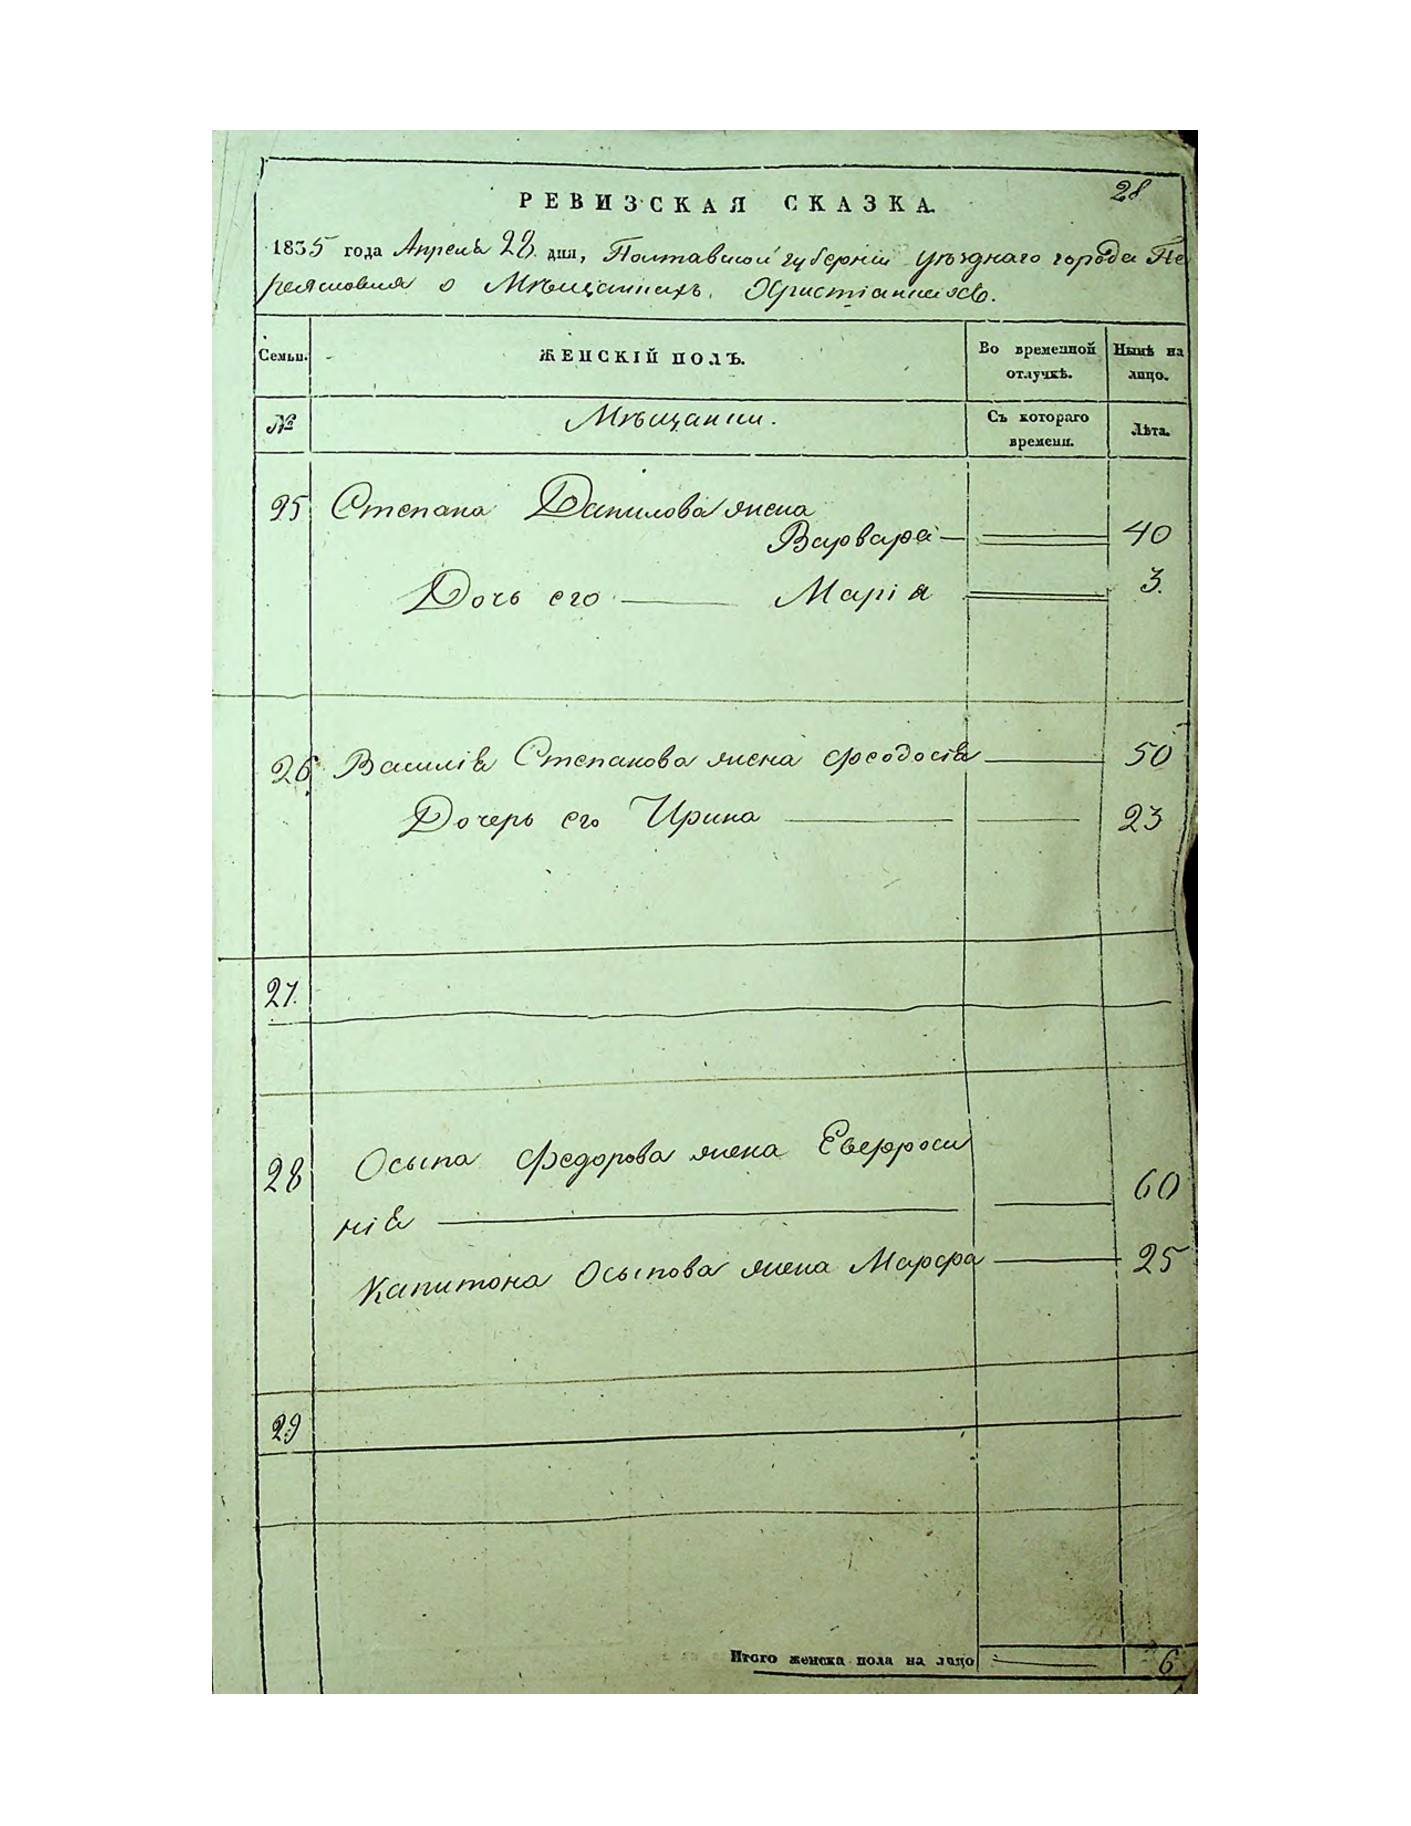 28
РЕВИЗСКАЯ СКАЗКА.
1835 года Апреля 28 дня, Полтавской губернии уѣзднаго города Пе
реяславля о Мѣщанахъ Христіанахъ.
Семьи. ЖЕНСКІЙ ПОЛЪ. Во временной отлучкѣ. Нынѣ на лицо.
№ Мѣщани. Съ котораго времени. Лѣта.
25 Степана Данилова жена
Варвара 40
Дочь его Марія 3.
26 Василія Степанова жена Феодосія 50
Дочерь его Ирина 23
27.
28 Осыпа Федорова жена Евфроси
нія 60
Капитона Осыпова жена Марфа 25
29
Итого женска пола на лицо 6